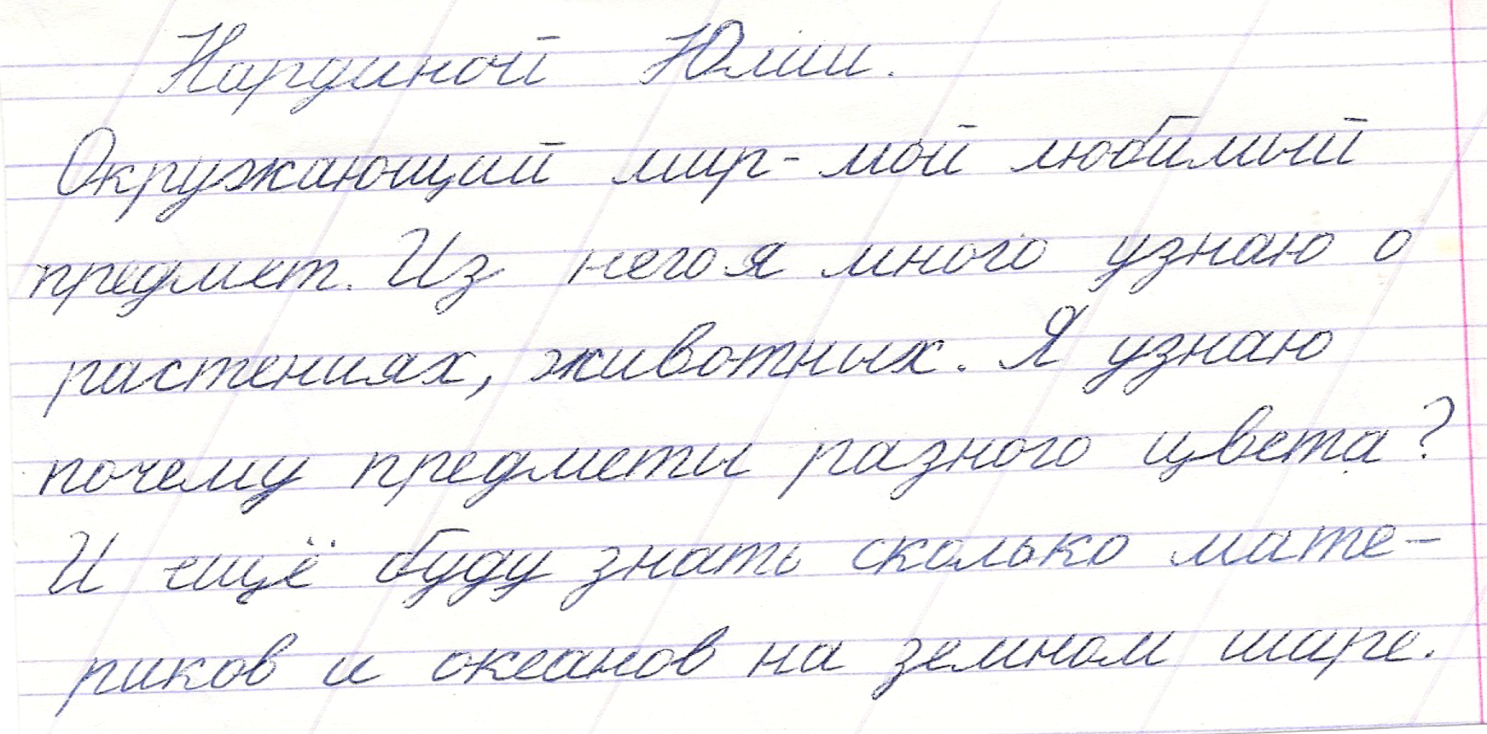 Нардиной Юлии.
Окружающий мир - мой любимый
предмет. Из него я много узнаю о
растениях, животных. Я узнаю
почему предметы разного цвета?
И ещё буду знать сколько мате-
риков и океанов на земном шаре.